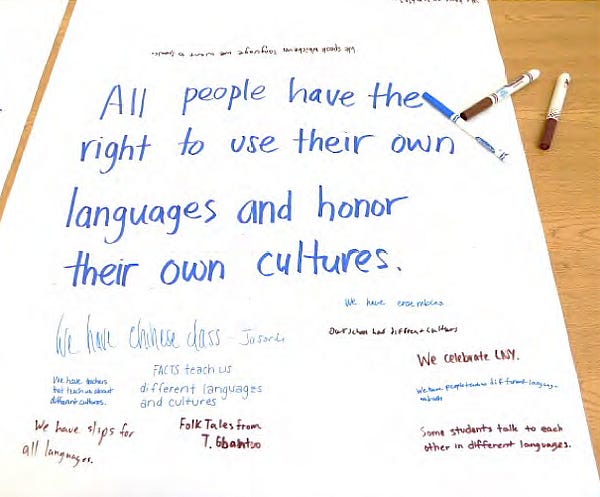 We speak whichever language we want to speak.
All people have the
right to use their own
languages and honor
their own cultures.
We have ensembles
We have chinese class - Jason Li
Our school has different cultures
We celebrate LNY.
We have teachers
that teach us about
different cultures.
FACTS teach us
different languages
and cultures
We have people teach us different language
We have slips for
all languages.
Folk Tales from
T. Gbahtuo
Some students talk to each
other in different languages.